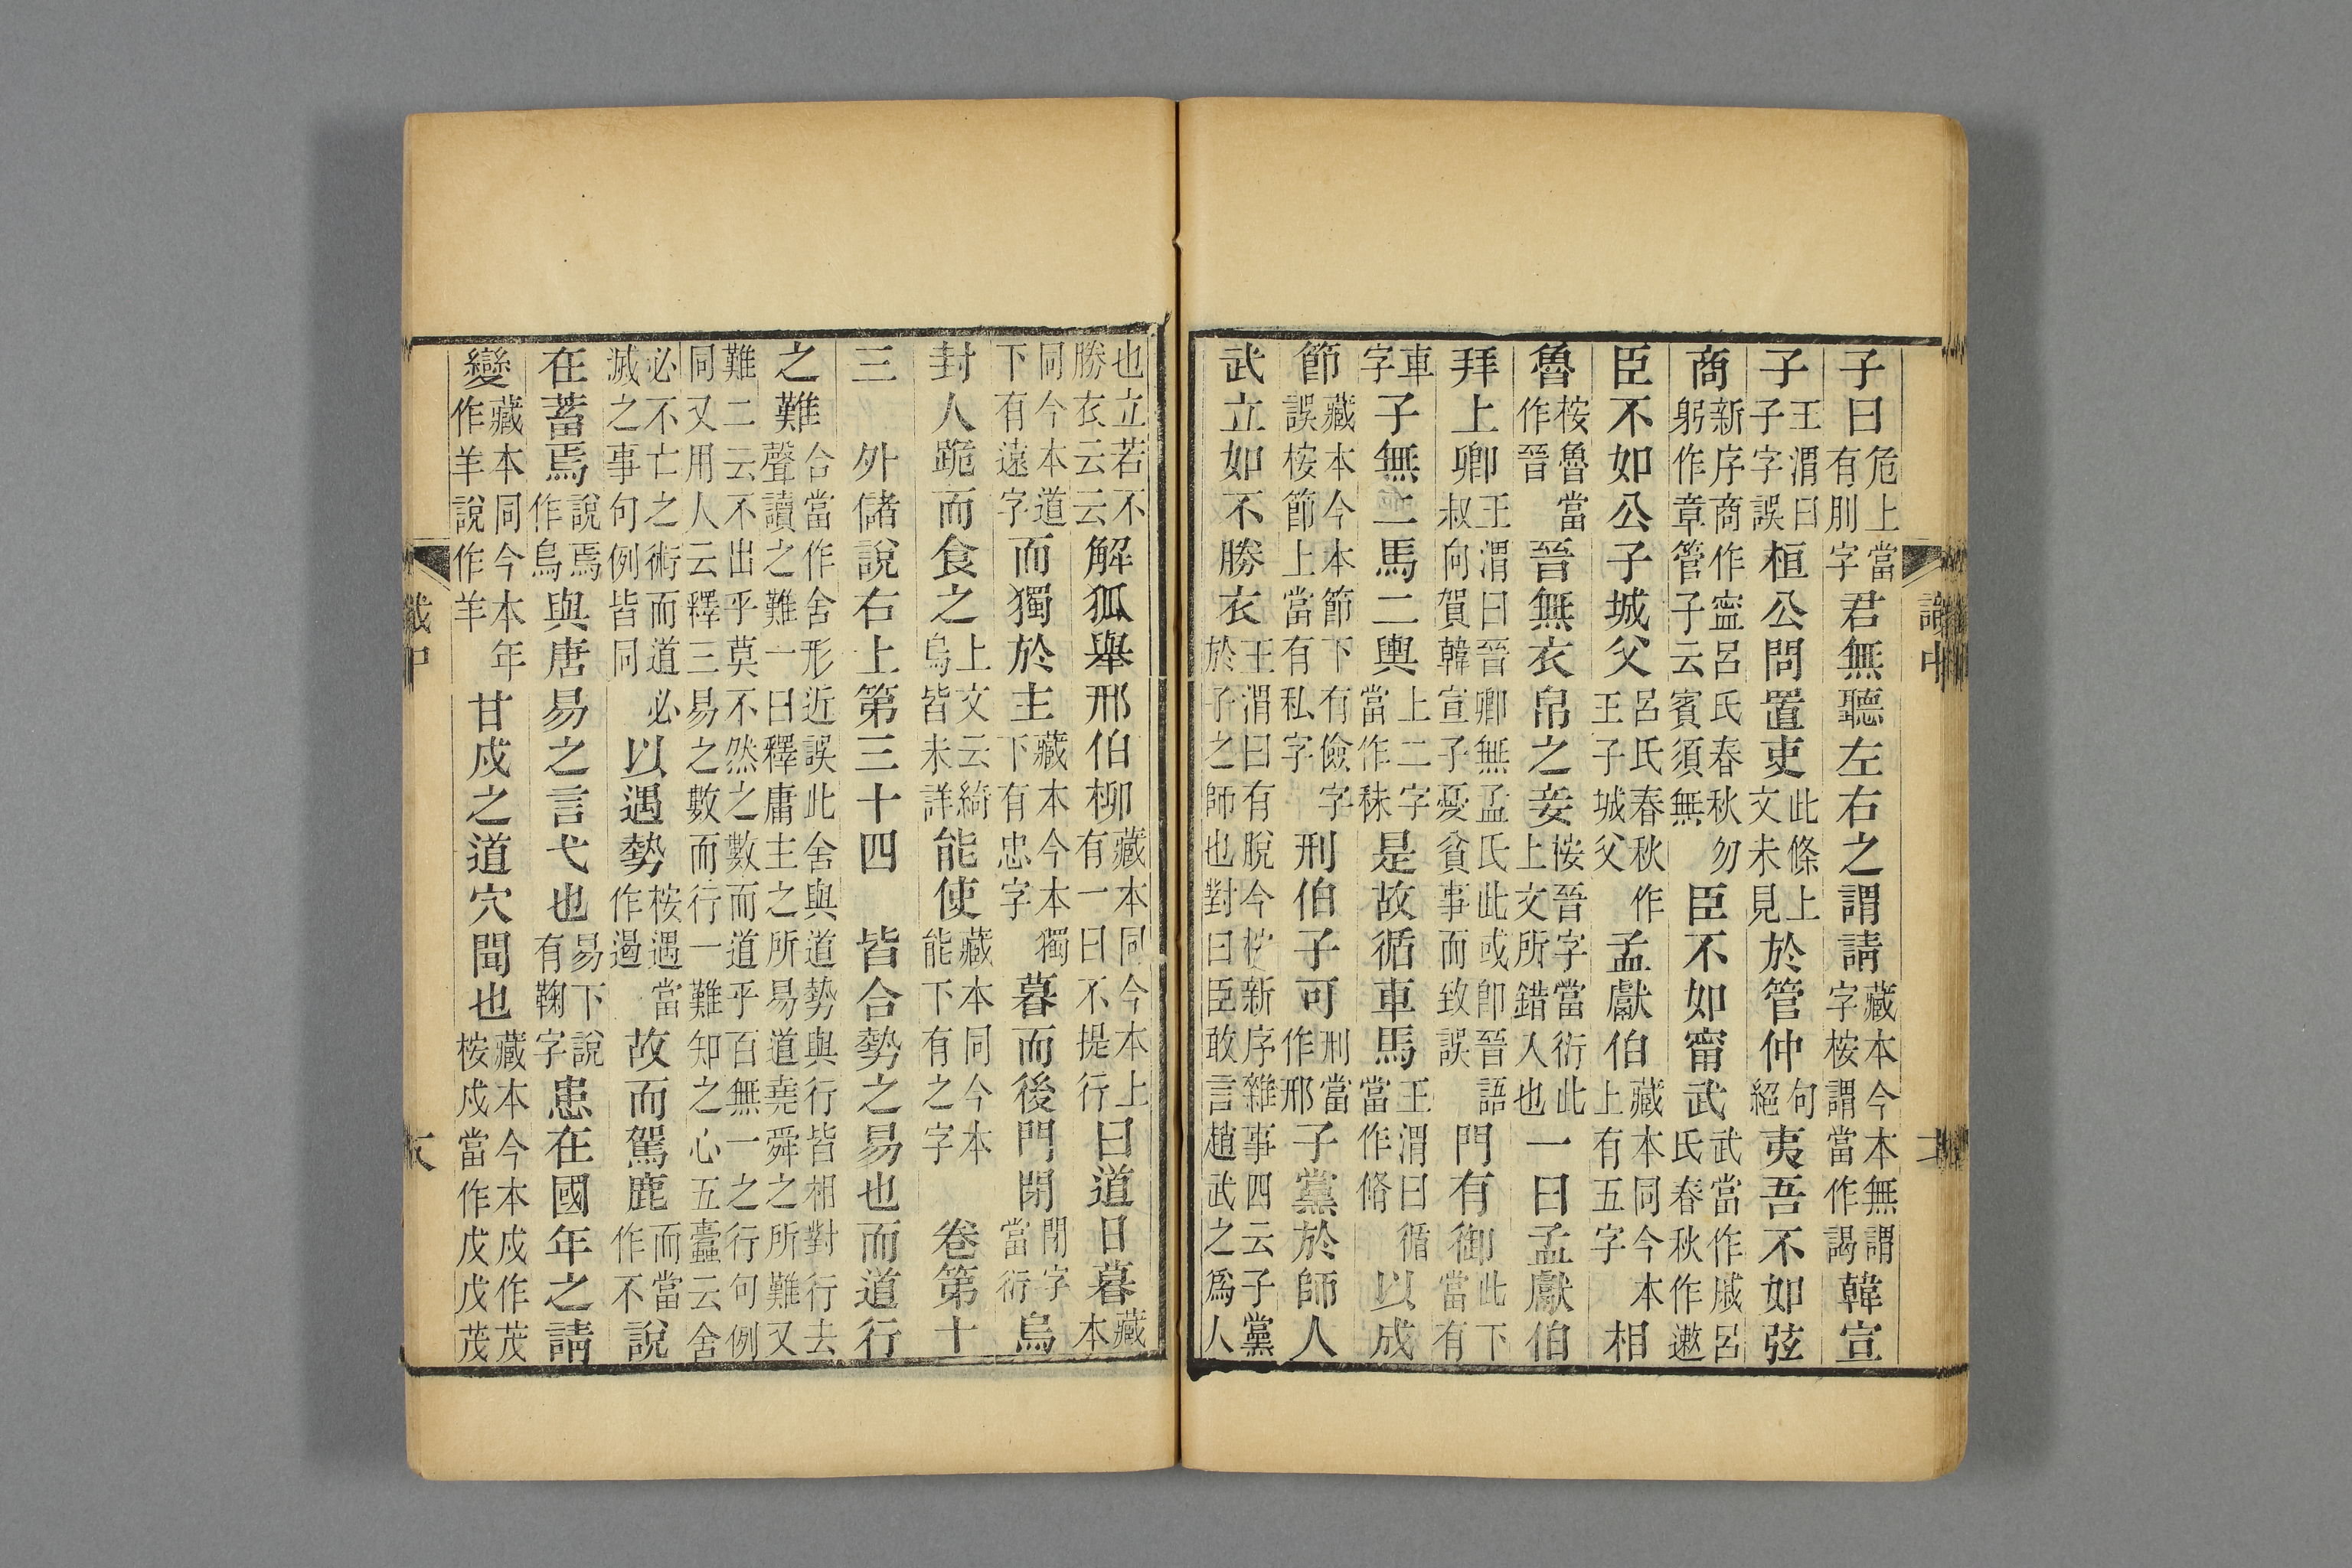 子曰危上當有刖字君無聽左右之謂請藏本今本無謂字桉謂當作謁韓宣
子王渭曰子字誤桓公問置吏此條上文未見於管仲句絕夷吾不如弦
商新序商作甯呂氏春秋勿躬作章管子云賓須無臣不如甯武武當作戚呂氏春秋作遬
臣不如公子城父呂氏春秋作王子城父孟獻伯藏本同今本上有五字相
魯桉魯當作晉晉無衣帛之妾桉晉字當衍此上文所錯入也一曰孟獻伯
拜上卿王渭曰晉卿無孟氏此或卽晉語叔向賀韓宣子憂貧事而致誤門有御此下當有
車字子無二馬二輿上二字當作秣是故循車馬王渭曰循當作脩以成
節藏本今本節下有儉字誤桉節上當有私字刑伯子可刑當作邢子黨於師人
武立如不勝衣王渭曰有脫今桉新序雜事四云子黨於子之師也對曰臣敢言趙武之爲人
識中
也立若不勝衣云云解狐舉邢伯柳藏本同今本上有一曰不提行曰道日暮藏本
同今本道下有遠字而獨於主藏本今本獨下有忠字暮而後門閉閉字當衍烏
封人跪而食之上文云綺烏皆未詳能使藏本同今本能下有之字卷第十
三外儲說右上第三十四皆合勢之易也而道行
之難合當作舍形近誤此舍與道勢與行皆相對行去聲讀之難一曰釋庸主之所易道堯舜之所難又
難二云不出乎莫不然之數而道乎百無一之行句例同又用人云釋三易之數而行一難知之心五蠹云舍
必不亡之術而道必滅之事句例皆同以遇勢桉遇當作過故而駕鹿而當作不說
在蓄焉說焉作烏與唐易之言弋也易下說有鞠字患在國年之請
變藏本同今本年作羊說作羊甘戍之道穴聞也藏本今本戍作茂桉戍當作戊戊茂
識中